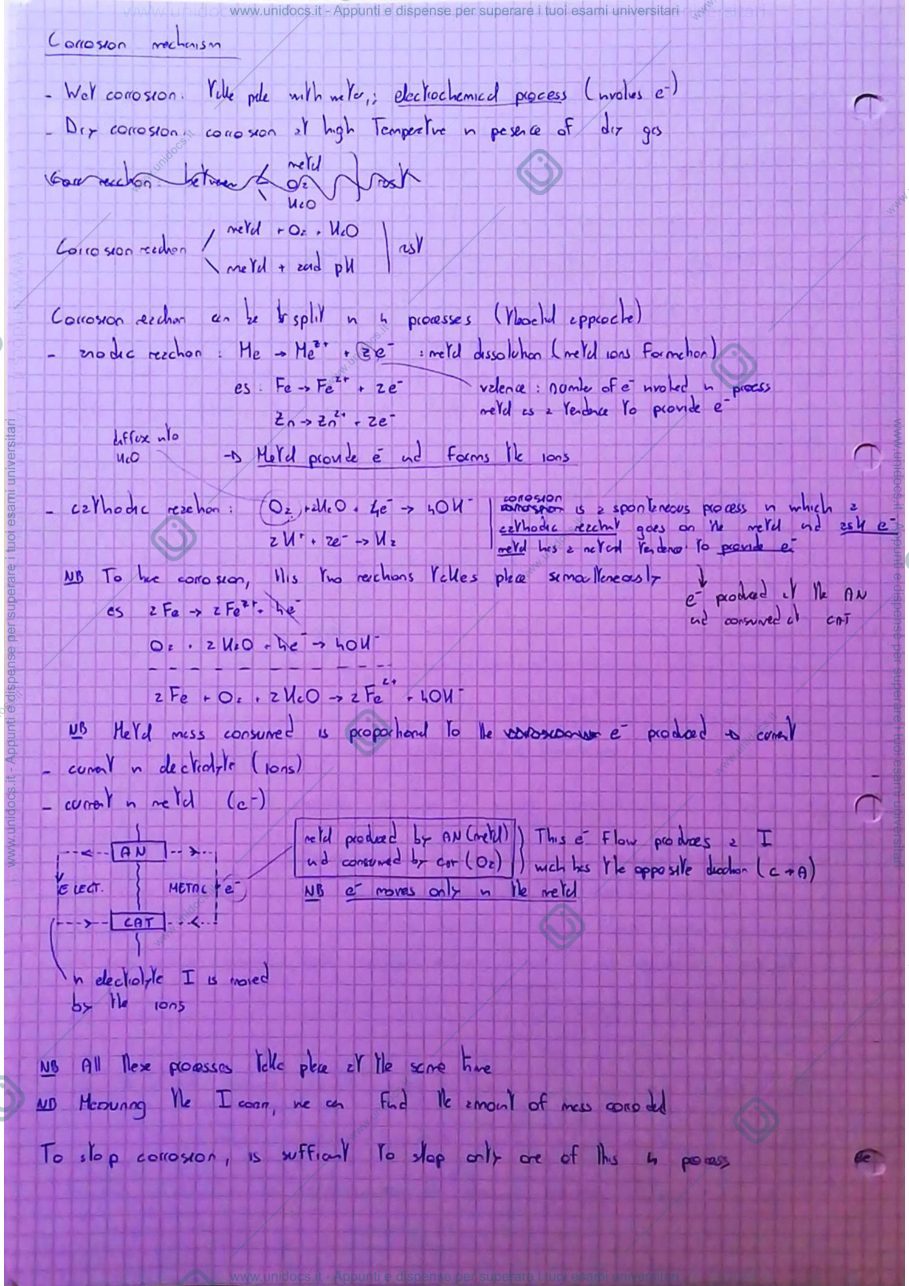 www.unidocs.it - Appunti e dispense per superare i tuoi esami universitari
Corrosion mechanism
- Wet corrosion: take place with water,: electrochemical process (involves e⁻)
- Dry corrosion: corrosion at high Temperature in presence of dry gas
reaction between
metal
O₂
H₂O
rust
Corrosion reaction
metal + O₂ + H₂O
metal + acid pH
rust
Corrosion reaction can be split in 4 processes
- anodic reaction : Me → Me²⁺ + 2e⁻ : metal dissolution (metal ions formation)
es : Fe → Fe²⁺ + 2e⁻
valence : number of e⁻ involved in process
metal as a tendence to provide e⁻
Zn → Zn²⁺ + 2e⁻
diffuse into
H₂O
→ Metal provide e⁻ and forms the ions
- cathodic reaction : O₂ + 2H₂O + 4e⁻ → 4OH⁻
2H⁺ + 2e⁻ → H₂
corrosion is a spontaneous process in which a
cathodic goes on the metal and ask e⁻
metal has a natural tendence to provide e⁻
NB To have corrosion, this two reactions takes place simoultaneously
e⁻ produced at the AN
and consumed at CAT
es 2Fe → 2Fe²⁺ + 4e⁻
O₂ + 2H₂O + 4e⁻ → 4OH⁻
2Fe + O₂ + 2H₂O → 2Fe²⁺ + 4OH⁻
NB Metal mass consumed is proportional to the e⁻ produced → current
- current in electrolyte (ions)
- current in metal (e⁻)
AN
ELECT.
METAL
e⁻
CAT
metal produced by AN (metal)
and consumed by CAT (O₂)
NB e⁻ moves only in the metal
This e⁻ flow produces a I
wich has the opposite direction (C→A)
in electrolyte I is moved
by the ions
NB All these processes take place at the same time
NB Measuring the I corr, we can find the amount of mass corroded
To stop corrosion, is sufficient to stop only one of this 4 process
www.unidocs.it - Appunti e dispense per superare i tuoi esami universitari